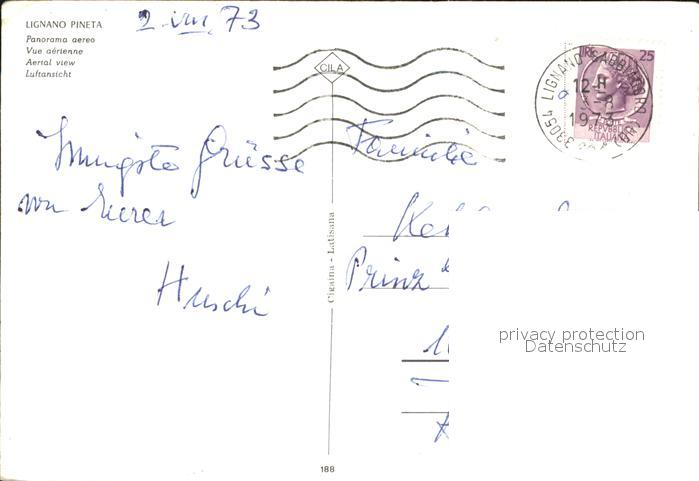 LIGNANO PINETA
Panorama aereo
Vue aérienne
Aerial view
Luftansicht
2 VIII 73
CILA
25
33054 LIGNANO SABBIADORO
12-
-8
1973
Innigste Grüsse
von Eurer
Huschi
Familie
Prinz
Cigaina - Latisana
privacy protection
Datenschutz
188